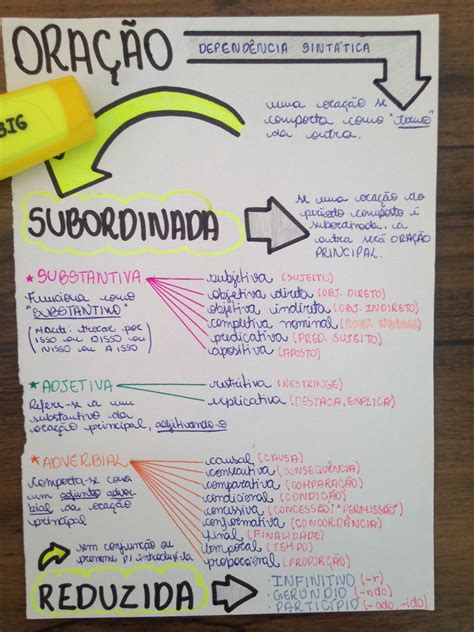 ORAÇÃO
DEPENDÊNCIA SINTÁTICA
BIG
uma oração se
comporta como "termo"
da outra.
SUBORDINADA
se uma oração do
período composto é
subordinada, a
outra será ORAÇÃO
PRINCIPAL.
*SUBSTANTIVA
Funciona como
"SUBSTANTIVO"
trocar por
ISSO ou DISSO ou
NISSO ou A ISSO
subjetiva (SUJEITO)
objetiva direta (OBJ. DIRETO)
objetiva indireta (OBJ. INDIRETO)
completiva nominal (COMP. NOMINAL)
predicativa (PRED. SUJEITO)
apositiva (APOSTO)
*ADJETIVA
Refere-se a um
substantivo da
oração principal, adjetivando-o
restritiva (RESTRINGE)
explicativa (DESTACA, EXPLICA)
*ADVERBIAL
Comporta-se como
um adjunto adver-
bial da oração
principal
causal (CAUSA)
consecutiva (CONSEQUÊNCIA)
comparativa (COMPARAÇÃO)
condicional (CONDIÇÃO)
concessiva (CONCESSÃO/"PERMISSÃO")
conformativa (CONCORDÂNCIA)
final (FINALIDADE)
temporal (TEMPO)
proporcional (PROPORÇÃO)
sem conjunção ou
pronome p/ introduzi-la
REDUZIDA
· INFINITIVO (-r)
· GERÚNDIO (-ndo)
· PARTICÍPIO (-ado, -ido)